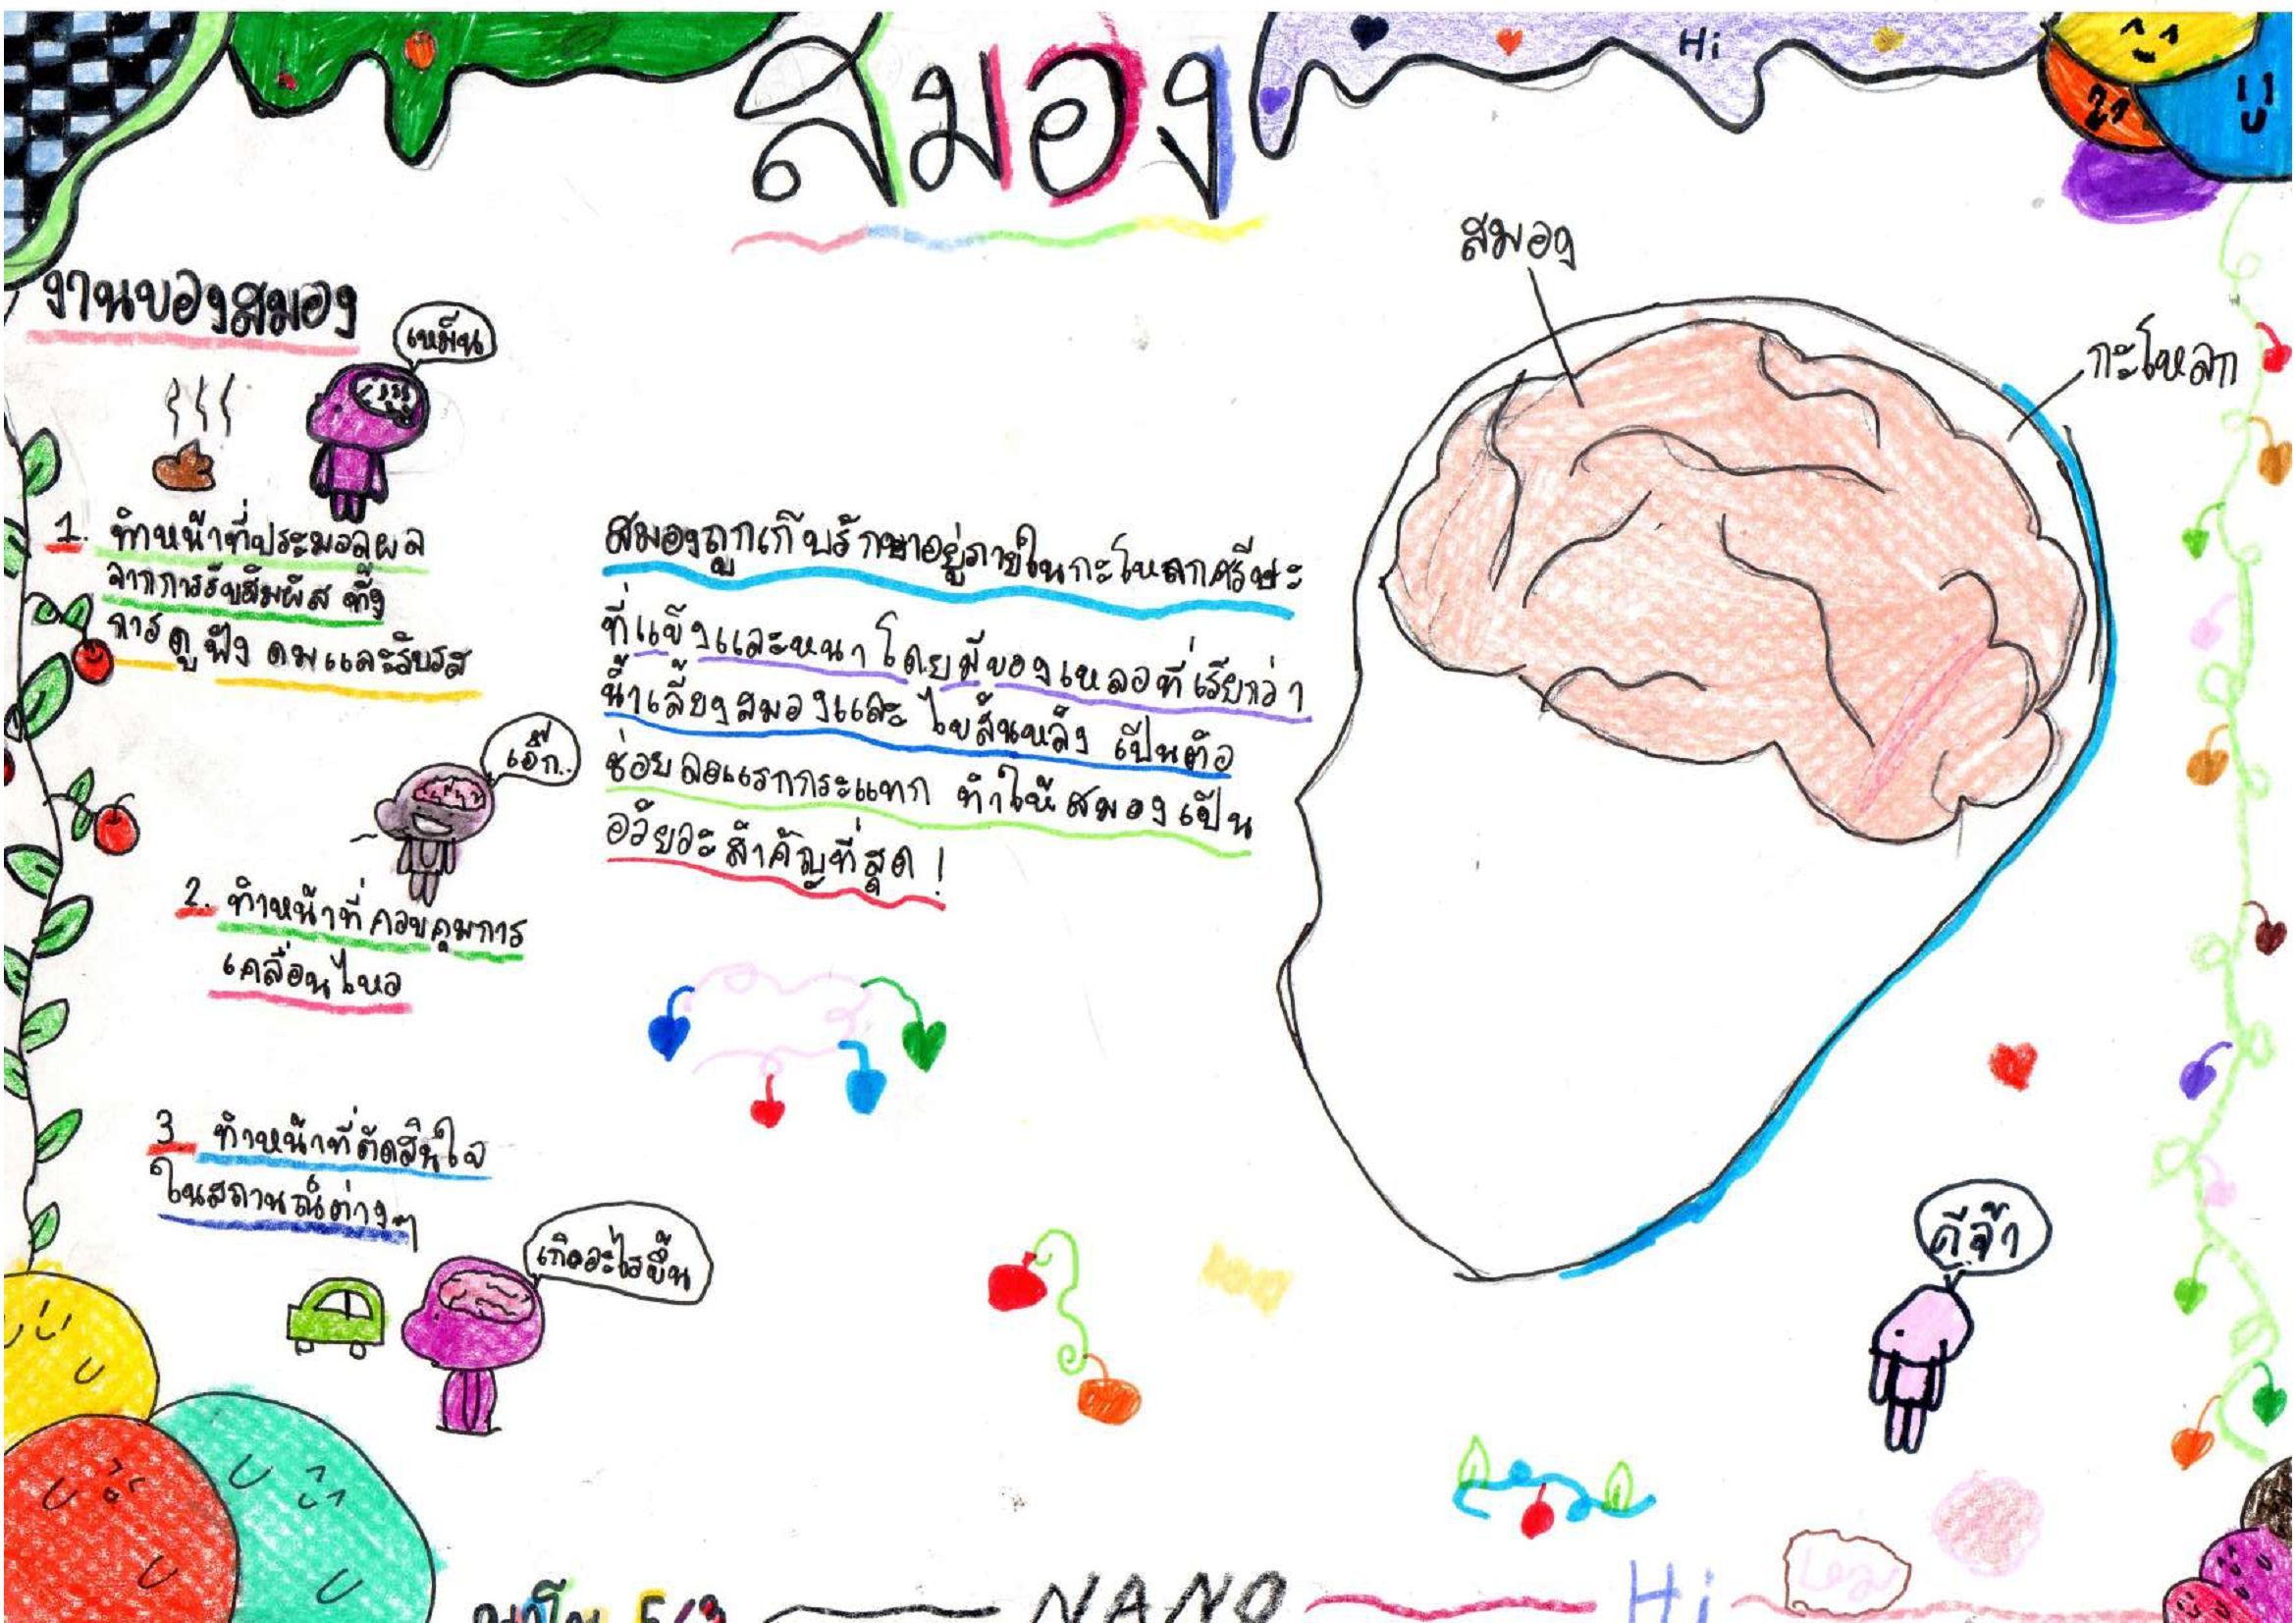 Hi
สมอง
งานของสมอง
เหม็น
1. ทำหน้าที่ประมวลผล
จากการรับสัมผัส ทั้ง
การดู ฟัง ดมและรับรส
เอิ๊ก..
2. ทำหน้าที่ควบคุมการ
เคลื่อนไหว
3 ทำหน้าที่ตัดสินใจ
ในสถานณ์ต่างๆ
เกิดอะไรขึ้น
สมองถูกเก็บรักษาอยู่ภายในกะโหลกศรีษะ
ที่แข็งและหนา โดยมีของเหลวที่เรียกว่า
น้ำเลี้ยงสมองและ ไขสันหลัง เป็นตัว
ช่วยลดแรกกระแทก ทำให้สมองเป็น
อวัยวะสำคัญที่สุด !
สมอง
กะโหลก
ดีจ้า
5/3
NANO
Hi